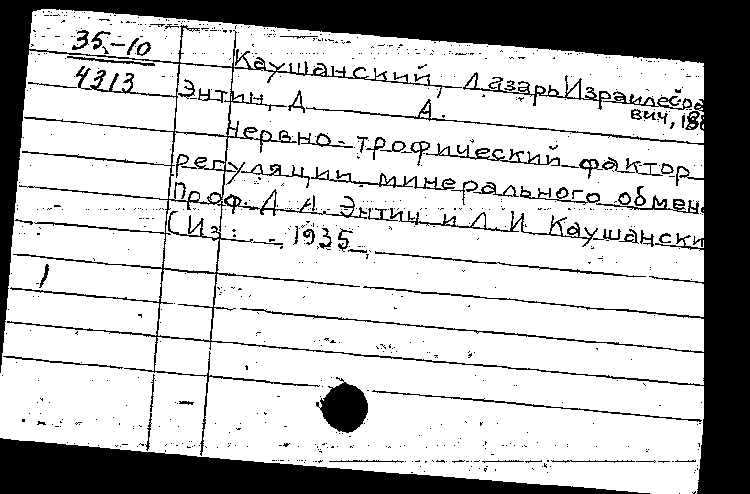 35-10
4313
Каушанский, Лазарь Израилевич, 188
Энтин, Д. А.
Нервно-трофический фактор
регуляции минерального обмен
Проф. Д. А. Энтин и Л. И. Каушански
(Из: . -, 1935,